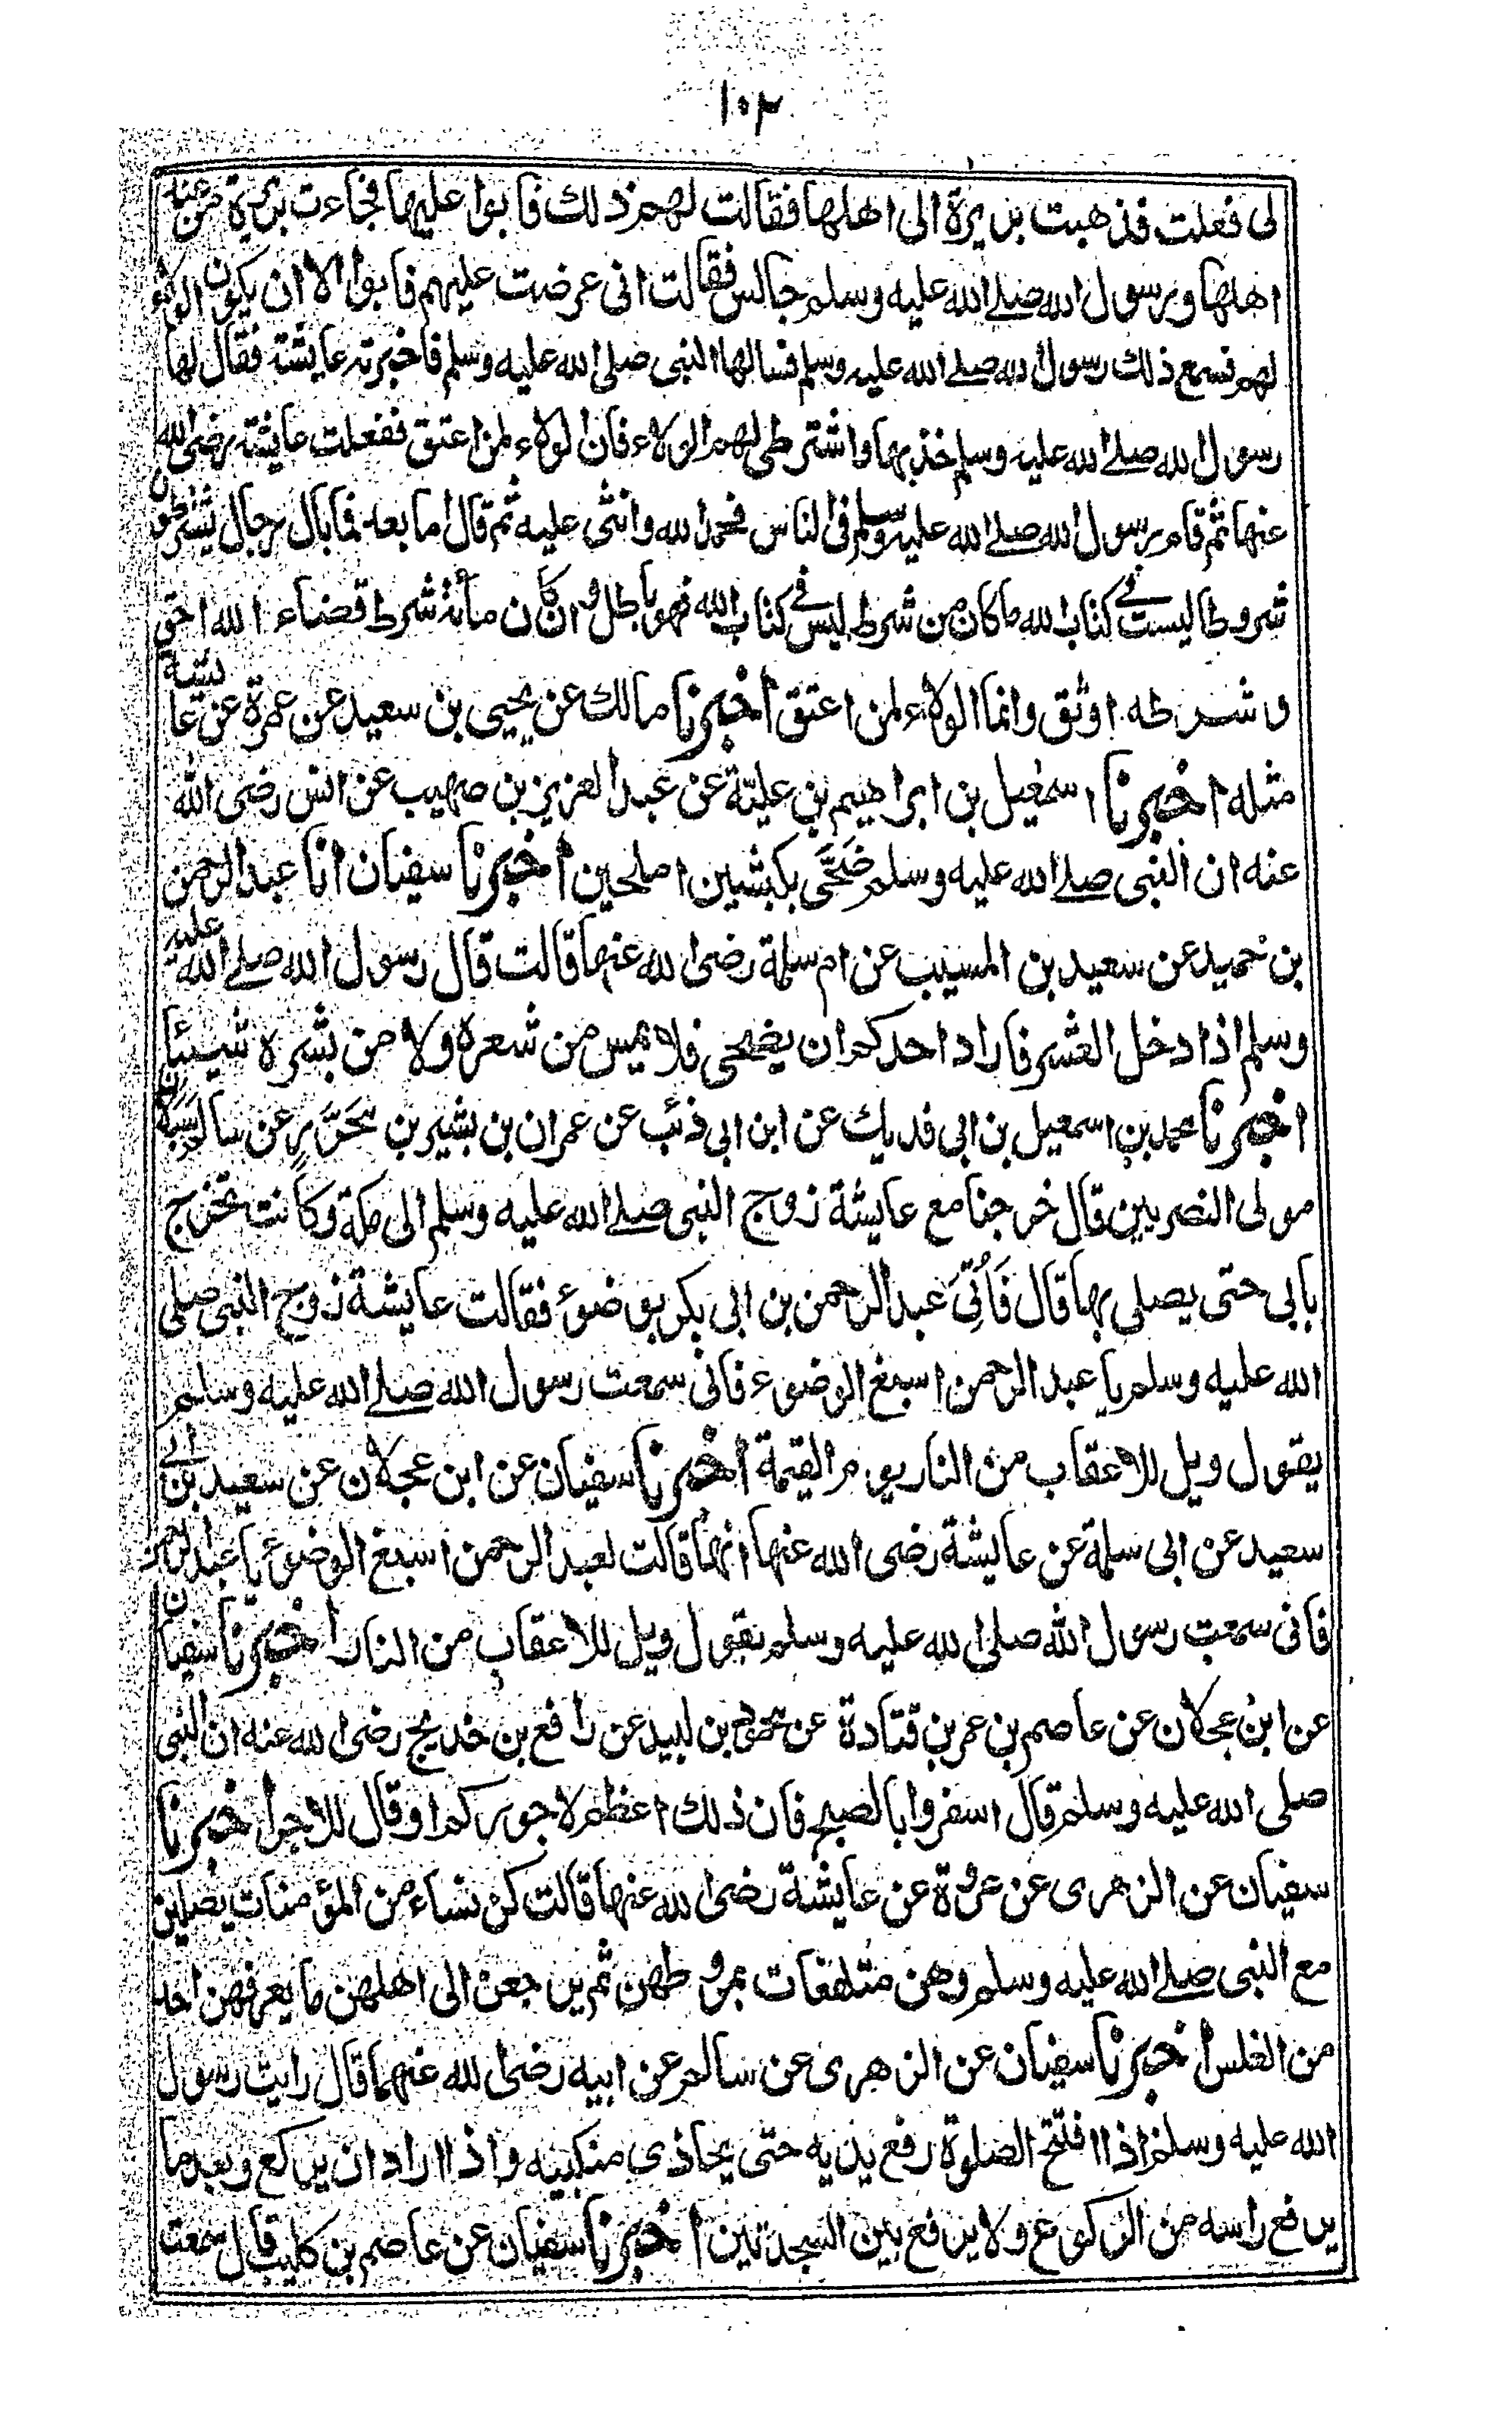 ۱۰۳
لى فعلت فذهبت بريرة الى اهلها فقالت لهم ذلك فابوا عليها فجاءت بريرة من عند
اهلها ورسول الله صلى الله عليه وسلم جالس فقالت انى عرضت عليهم فابوا الا ان يكون الولاء
لهم فسمع ذلك رسول الله صلى الله عليه وسلم فسالها النبى صلى الله عليه وسلم فاخبرته عايشة فقال لها
رسول الله صلى الله عليه وسلم خذيها واشترطى لهم الولاء فان الولاء لمن اعتق ففعلت عايشة رضى الله
عنها ثم قام رسول الله صلى الله عليه وسلم فى الناس فحمد الله واثنى عليه ثم قال اما بعد فما بال رجال يشترطون
شروطا ليست فى كتاب الله ما كان من شرط ليس فى كتاب الله فهو باطل وان كان مأئة شرط قضاء الله احق
وشرطه اوثق وانما الولاء لمن اعتق اخبرنا مالك عن يحيى بن سعيد عن عمرة عن عايشة
مثله اخبرنا اسمعيل بن ابراهيم بن عليّة عن عبد العزيز بن صهيب عن انس رضى الله
عنه ان النبى صلى الله عليه وسلم ضَحَّى بكبشين املحين اخبرنا سفيان انا عبد الرحمن
بن حميد عن سعيد بن المسيب عن ام سلمة رضى الله عنها قالت قال رسول الله صلى الله عليه
وسلم اذا دخل العشر فاراد احدكم ان يضحى فلا يمس من شعره ولا من بشره شيئا
اخبرنا محمد بن اسمعيل بن ابى فديك عن ابن ابى ذئب عن عمران بن بشير بن مُحَرَّر عن سالم سَبَلان
مولى النصريين قال خرجنا مع عايشة زوج النبى صلى الله عليه وسلم الى مكة وكانت تخرج
بابى حتى يصلى بها قال فَأُتِىَ عبد الرحمن بن ابى بكر بوضوء فقالت عايشة زوج النبى صلى
الله عليه وسلم يا عبد الرحمن اسبغ الوضوء فانى سمعت رسول الله صلى الله عليه وسلم
يقول ويل للاعقاب من النار يوم القيمة اخبرنا سفيان عن ابن عجلان عن سعيد بن ابى
سعيد عن ابى سلمة عن عايشة رضى الله عنها انها قالت لعبد الرحمن اسبغ الوضوء يا عبد الرحمن
فانى سمعت رسول الله صلى الله عليه وسلم يقول ويل للاعقاب من النار اخبرنا سفيان
عن ابن عجلان عن عاصم بن عمر بن قتادة عن محمود بن لبيد عن رافع بن خديج رضى الله عنه ان النبى
صلى الله عليه وسلم قال اسفروا بالصبح فان ذلك اعظم لاجوركم او قال للاجر اخبرنا
سفيان عن الزهرى عن عروة عن عايشة رضى الله عنها قالت كن نساء من المؤمنات يصلين
مع النبى صلى الله عليه وسلم وهن متلفعات بمروطهن ثم يرجعن الى اهلهن ما يعرفهن احد
من الغلس اخبرنا سفيان عن الزهرى عن سالم عن ابيه رضى الله عنهما قال رايت رسول
الله عليه وسلم اذا افتتح الصلوة رفع يديه حتى يحاذى منكبيه واذا اراد ان يركع وبعد ما
يرفع راسه من الركوع ولا يرفع بين السجدتين اخبرنا سفيان عن عاصم بن كليب قال سمعت